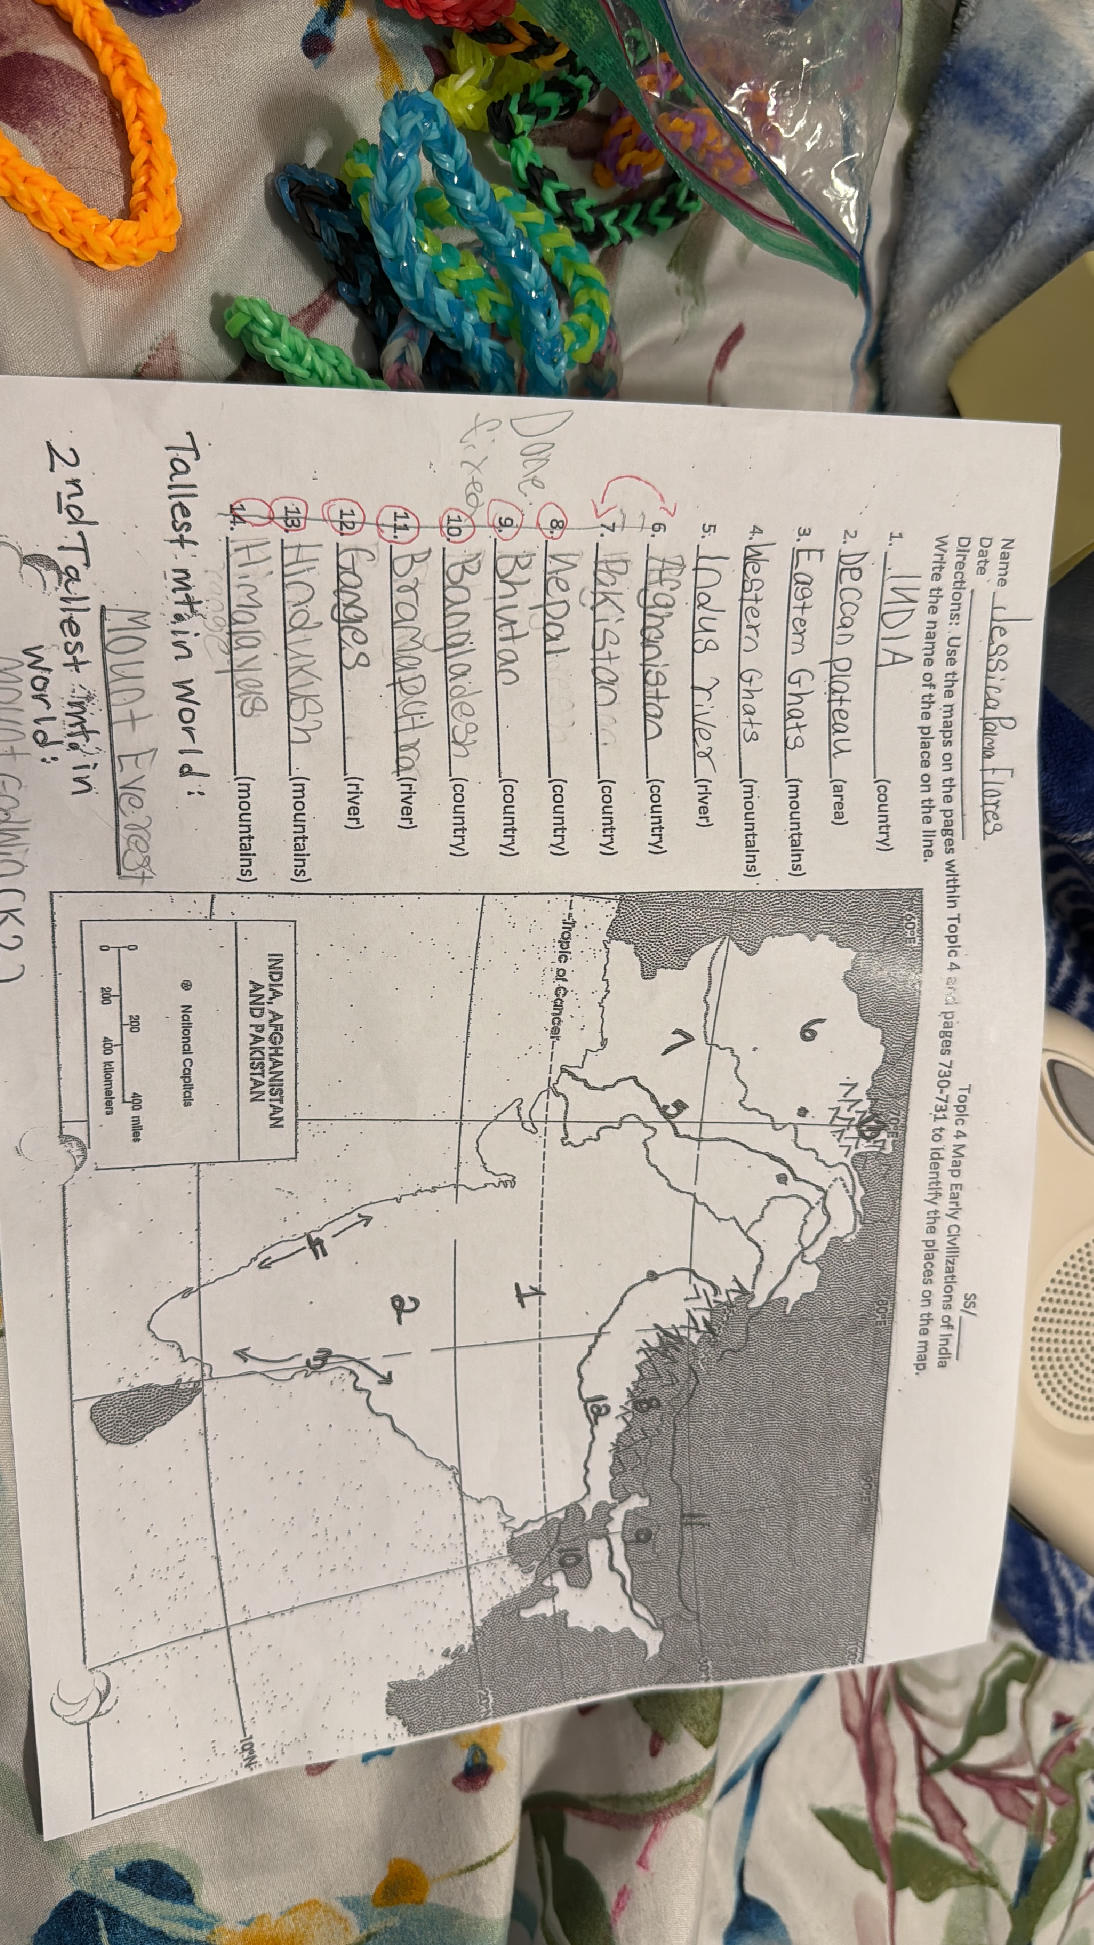 Name Jessica Palma Flores
Date
Topic 4 Map Early Civilizations of India
SS/
Directions: Use the maps on the pages within Topic 4 and pages 730-731 to identify the places on the map.
Write the name of the place on the line.
1. INDIA (country)
2. Deccan plateau (area)
3. Eastern Ghats (mountains)
4. Western Ghats (mountains)
5. Indus river (river)
6. Afghanistan (country)
7. Pakistan (country)
8. Nepal (country)
9. Bhutan (country)
10. Bangladesh (country)
11. Bramaputra (river)
12. Ganges (river)
13. Hindu Kush (mountains)
14. Himalayas (mountains)
Done
fixed
Tallest mtain world:
Mount Everest
2nd Tallest mtain
world:
60°E
70°E
80°E
90°E
Tropic of Cancer
30°
20°
10°N
1
2
3
4
5
6
7
8
9
10
11
12
INDIA, AFGHANISTAN
AND PAKISTAN
National Capitals
0 200 400 miles
0 200 400 kilometers